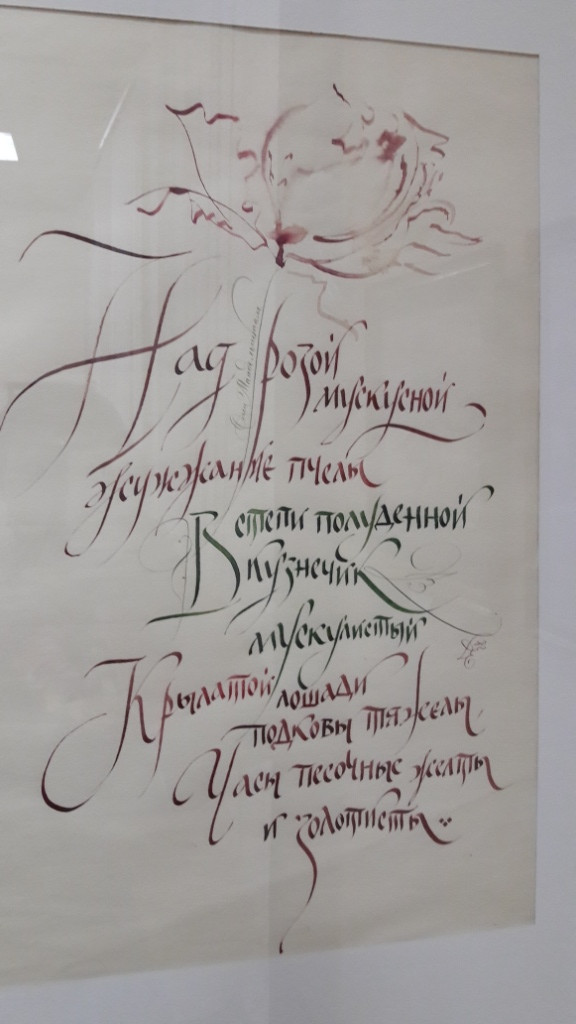 Над розой
мускусной
жужжание пчелы
В степи полуденной
кузнечик
мускулистый
Крылатой лошади
подковы тяжелы
Часы песочные желты
и золотисты..